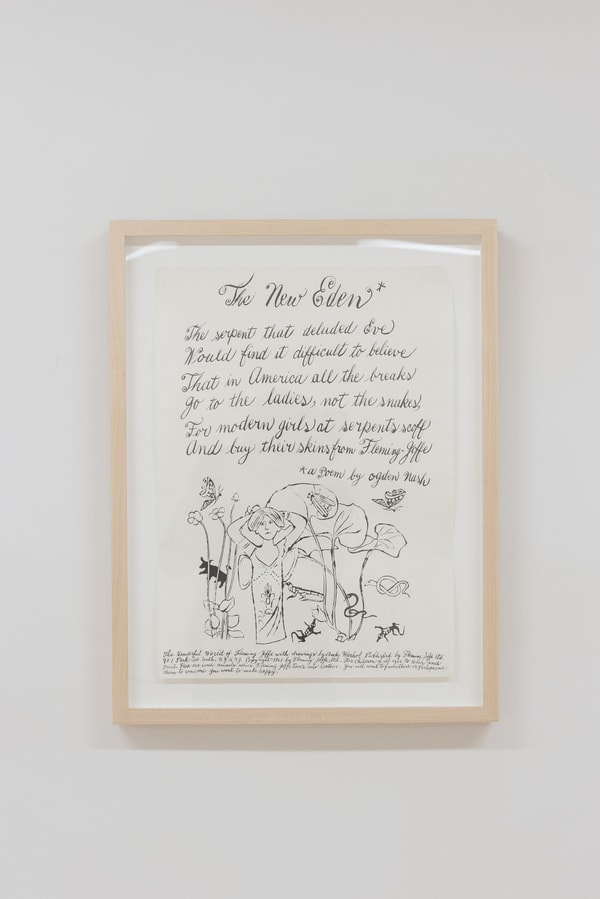 The New Eden*
The serpent that deluded Eve
Would find it difficult to believe
That in America all the breaks
Go to the ladies, not the snakes,
For modern girls at serpents scoff
And buy their skins from Fleming-Joffe
*a Poem by ogden Nash
The Wonderful World of Fleming Joffe with drawings by Andy Warhol. Published by Fleming Joffe Ltd.
Park Copyright by Fleming Joffe Ltd. For children of all ages to color
Fleming Joffe into leather. You will want to
them to someone you want to make happy.